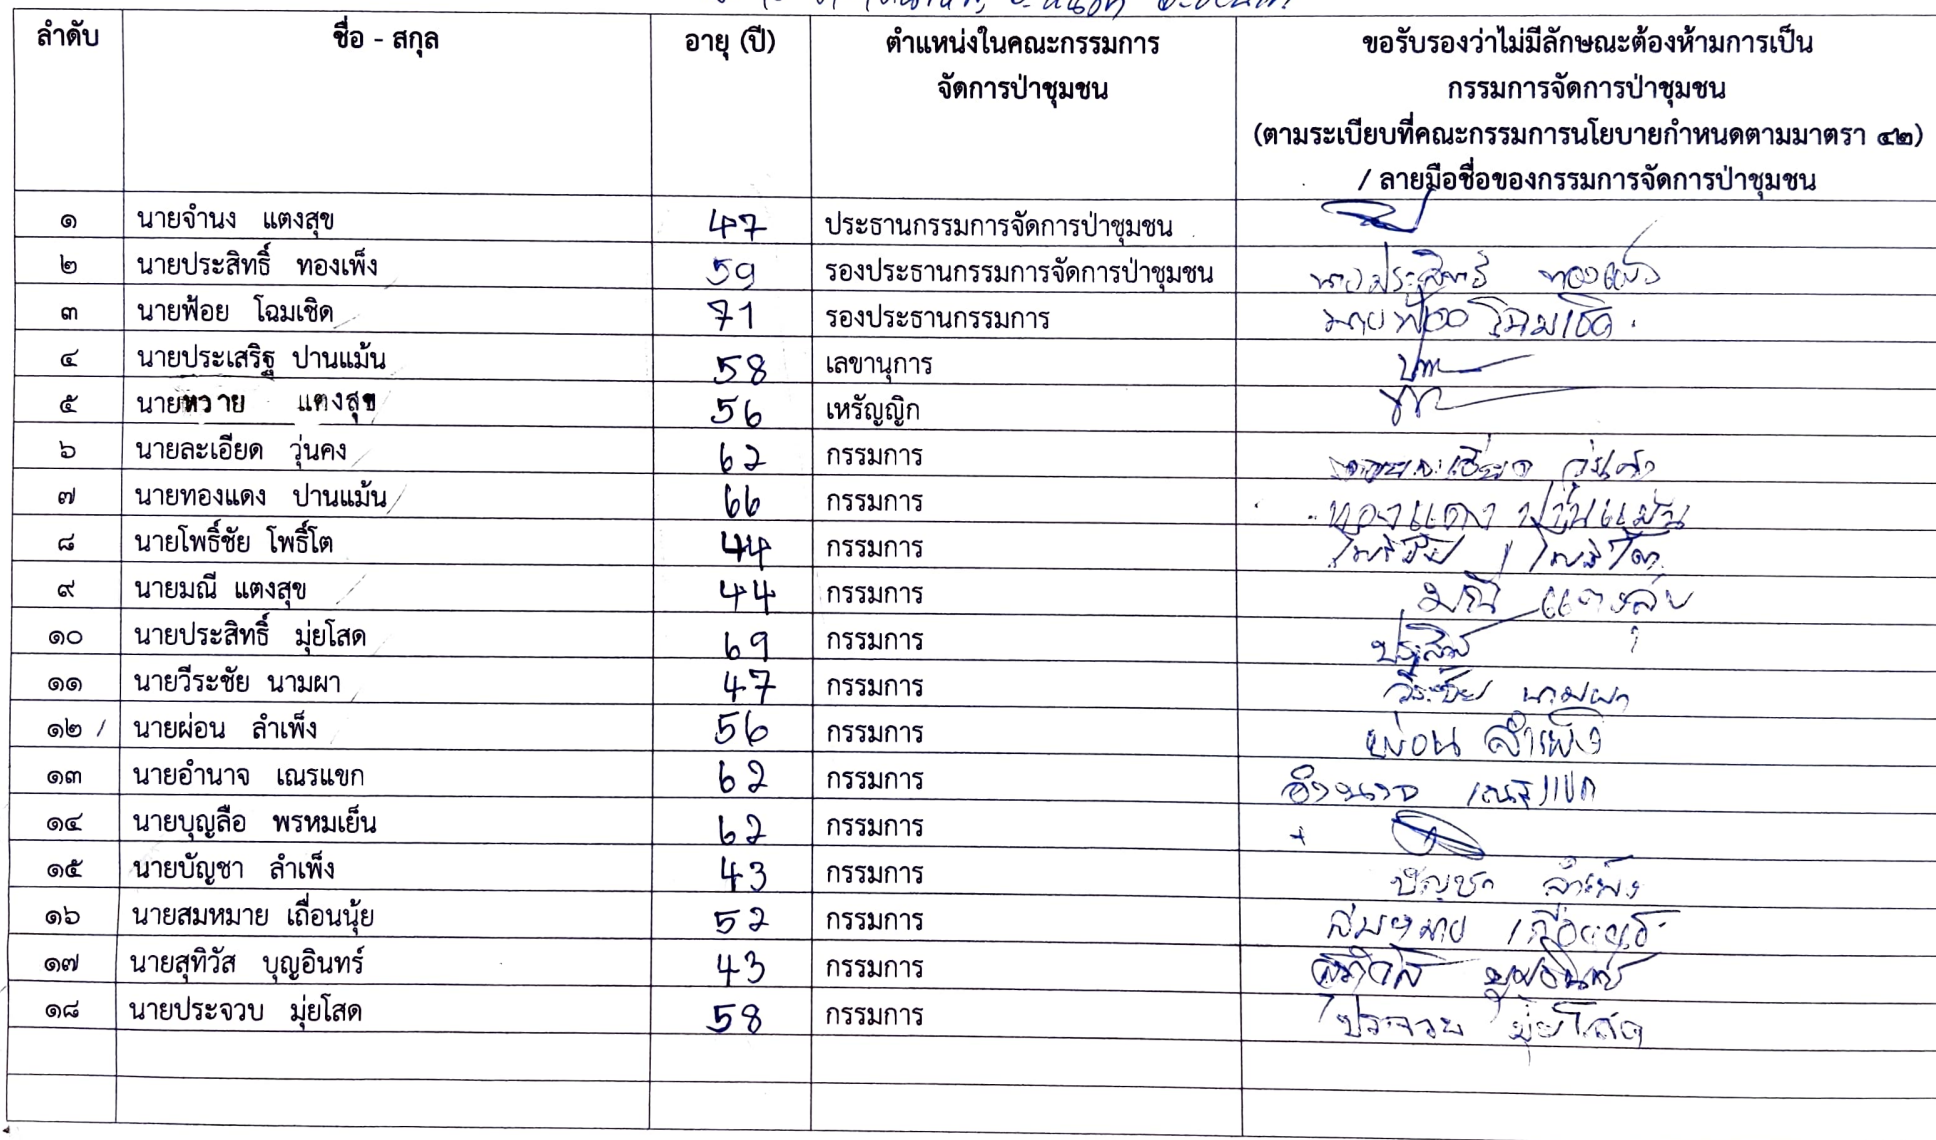 ลำดับ ชื่อ - สกุล อายุ (ปี) ตำแหน่งในคณะกรรมการ ขอรับรองว่าไม่มีลักษณะต้องห้ามการเป็น
จัดการป่าชุมชน กรรมการจัดการป่าชุมชน
(ตามระเบียบที่คณะกรรมการนโยบายกำหนดตามมาตรา ๔๒)
/ ลายมือชื่อของกรรมการจัดการป่าชุมชน
๑ นายจำนง แตงสุข 47 ประธานกรรมการจัดการป่าชุมชน
๒ นายประสิทธิ์ ทองเพ็ง 59 รองประธานกรรมการจัดการป่าชุมชน นายประสิทธิ์ ทองเพ็ง
๓ นายฟ้อย โฉมเชิด 71 รองประธานกรรมการ นายฟ้อย โฉมเชิด
๔ นายประเสริฐ ปานแม้น 58 เลขานุการ
๕ นายหวาย แตงสุข 56 เหรัญญิก
๖ นายละเอียด วุ่นคง 62 กรรมการ นายละเอียด วุ่นคง
๗ นายทองแดง ปานแม้น 66 กรรมการ ทองแดง ปานแม้น
๘ นายโพธิ์ชัย โพธิ์โต 44 กรรมการ โพธิ์ชัย โพธิ์โต
๙ นายมณี แตงสุข 44 กรรมการ มณี แตงสุข
๑๐ นายประสิทธิ์ มุ่ยโสด 69 กรรมการ
๑๑ นายวีระชัย นามผา 47 กรรมการ วีระชัย นามผา
๑๒ นายผ่อน ลำเพ็ง 56 กรรมการ ผ่อน ลำเพ็ง
๑๓ นายอำนาจ เณรแขก 62 กรรมการ อำนาจ เณรแขก
๑๔ นายบุญลือ พรหมเย็น 62 กรรมการ
๑๕ นายบัญชา ลำเพ็ง 43 กรรมการ บัญชา ลำเพ็ง
๑๖ นายสมหมาย เถื่อนนุ้ย 52 กรรมการ สมหมาย
๑๗ นายสุทิวัส บุญอินทร์ 43 กรรมการ สุทิวัส บุญอินทร์
๑๘ นายประจวบ มุ่ยโสด 58 กรรมการ ประจวบ มุ่ยโสด